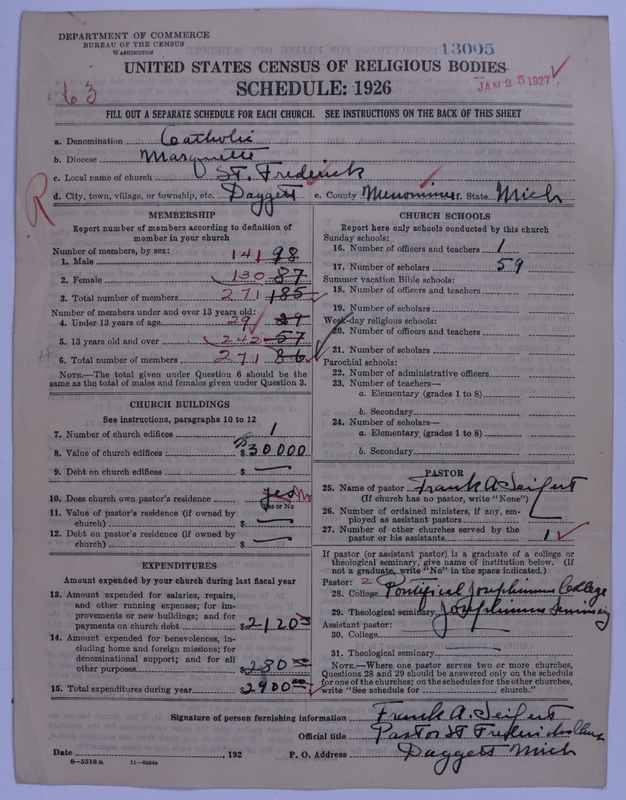 DEPARTMENT OF COMMERCE
BUREAU OF THE CENSUS
WASHINGTON
13005
UNITED STATES CENSUS OF RELIGIOUS BODIES
JAN 25 1927
63
SCHEDULE: 1926
FILL OUT A SEPARATE SCHEDULE FOR EACH CHURCH. SEE INSTRUCTIONS ON THE BACK OF THIS SHEET
a. Denomination Catholic
b. Diocese Marquette
c. Local name of church St. Frederick
R
d. City, town, village, or township, etc. Daggett e. County Menominee f. State Mich
MEMBERSHIP
Report number of members according to definition of
member in your church
Number of members, by sex:
1. Male 141 98
2. Female 130 87
3. Total number of members 271 185
Number of members under and over 13 years old:
4. Under 13 years of age 29 29
5. 13 years old and over 242 57
6. Total number of members 271 86
NOTE.—The total given under Question 6 should be the
same as the total of males and females given under Question 3.
CHURCH BUILDINGS
See instructions, paragraphs 10 to 12
7. Number of church edifices 1
8. Value of church edifices $30000
9. Debt on church edifices $ —
10. Does church own pastor's residence yes No
Yes or No
11. Value of pastor's residence (if owned by
church) $ —
12. Debt on pastor's residence (if owned by
church) $ —
EXPENDITURES
Amount expended by your church during last fiscal year
13. Amount expended for salaries, repairs,
and other running expenses; for im-
provements or new buildings; and for
payments on church debt $2120
14. Amount expended for benevolences, in-
cluding home and foreign missions; for
denominational support; and for all
other purposes $280
15. Total expenditures during year $2900
CHURCH SCHOOLS
Report here only schools conducted by this church
Sunday schools:
16. Number of officers and teachers 1
17. Number of scholars 59
Summer vacation Bible schools:
18. Number of officers and teachers
19. Number of scholars
Week-day religious schools:
20. Number of officers and teachers
21. Number of scholars
Parochial schools:
22. Number of administrative officers
23. Number of teachers—
a. Elementary (grades 1 to 8)
b. Secondary
24. Number of scholars—
a. Elementary (grades 1 to 8)
b. Secondary
PASTOR
25. Name of pastor Frank A Seifert
(If church has no pastor, write "None")
26. Number of ordained ministers, if any, em-
ployed as assistant pastors
27. Number of other churches served by the
pastor or his assistants 1
If pastor (or assistant pastor) is a graduate of a college or
theological seminary, give name of institution below. (If
not a graduate, write "No" in the space indicated.)
Pastor: 2
28. College Pontifical Josephinum College
29. Theological seminary Josephinum Seminary
Assistant pastor:
30. College
31. Theological seminary
NOTE.—Where one pastor serves two or more churches,
Questions 28 and 29 should be answered only on the schedule
for one of the churches; on the schedules for the other churches,
write "See schedule for church."
Signature of person furnishing information Frank A. Seifert
Official title Pastor St Fredericks Church
Date , 192 P. O. Address Daggett Mich
8—5518a